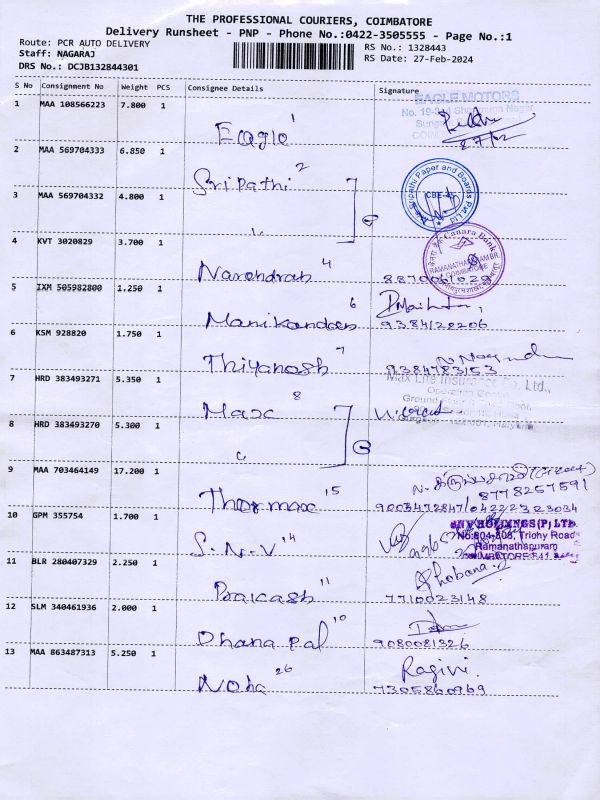 THE PROFESSIONAL COURIERS, COIMBATORE
Delivery Runsheet - PNP - Phone No.:0422-3505555 - Page No.:1
Route: PCR AUTO DELIVERY
RS No.: 1328443
Staff: NAGARAJ
RS Date: 27-Feb-2024
DRS No.: DCJB132844301
S No Consignment No Weight PCS Consignee Details Signature
1 MAA 108566223 7.800 1
EAGLE MOTORS
Eagle 1
2 MAA 569704333 6.850 1
Sripathi 2
Sripathi Paper and Boards Pvt Ltd
CBE-45
3 MAA 569704332 4.800 1
4 KVT 3020829 3.700 1
Canara Bank
RAMANATHAPURAM BR.
COIMBATORE
Narendran 4
5 IXM 505982800 1.250 1
Manikandan 6
9384122206
6 KSM 928820 1.750 1
Thiyanesh 7
9384783153
7 HRD 383493271 5.350 1
Max Life Insurance Co. Ltd.,
Max 8
8 HRD 383493270 5.300 1
9 MAA 703464149 17.200 1
8778257591
Thermax 15
9003472847/04222323034
10 GPM 355754 1.700 1
No:804-806, Trichy Road
Ramanathapuram
S.N.V 14
11 BLR 280407329 2.250 1
Shobana
Prakash 11
7710023148
12 SLM 340461936 2.000 1
Dhanapal 10
9080081326
13 MAA 863487313 5.250 1
Ragini.
Noha 26
7305860969